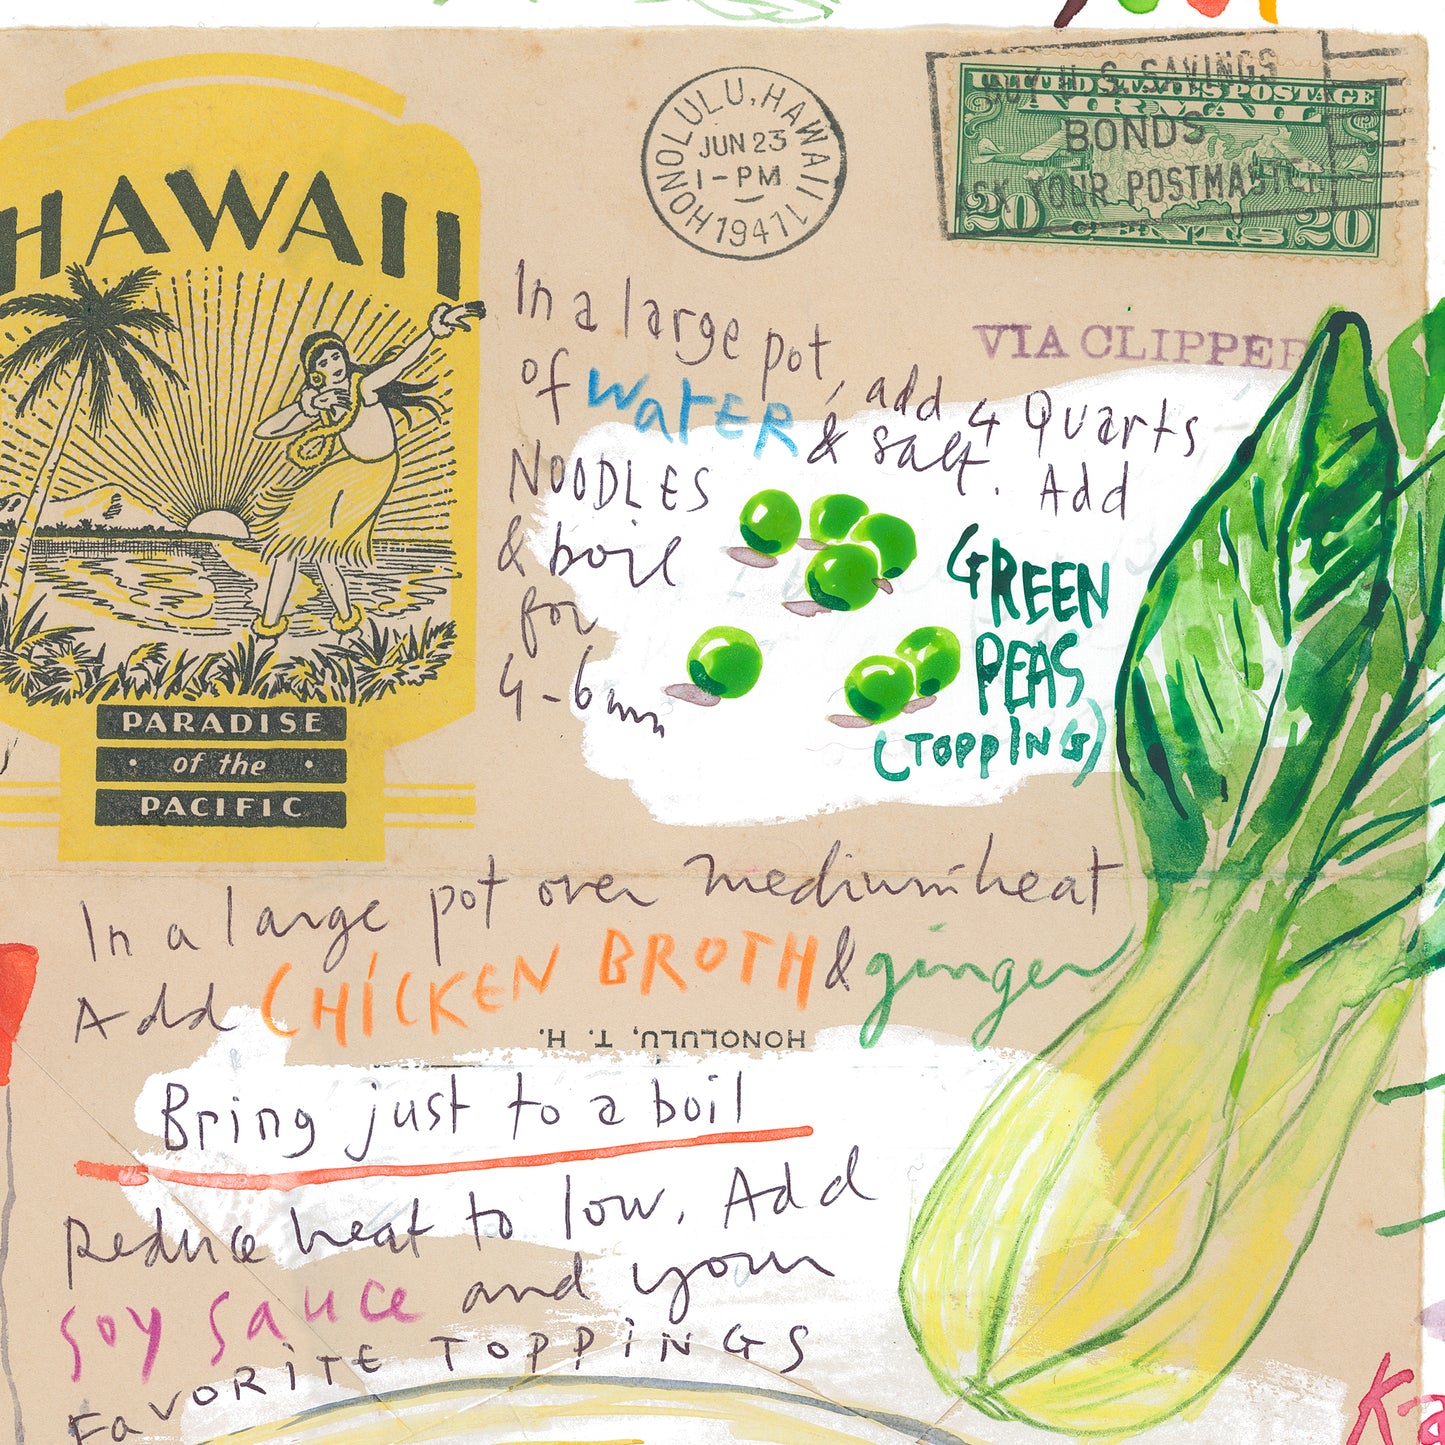 HAWAII
PARADISE
of the
PACIFIC
HONOLULU, HAWAII
JUN 23
1-PM
1941
BUY U.S. SAVINGS
BONDS
ASK YOUR POSTMASTER
UNITED STATES POSTAGE
AIR MAIL
20 CENTS 20
VIA CLIPPER
In a large pot, add 4 Quarts
of WatER & salt. Add
NOODLES
& boil
for
4-6 min
GREEN
PEAS
(TOPPING)
In a large pot over medium heat
Add CHICKEN BROTH & ginger
HONOLULU, T. H.
Bring just to a boil
Reduce heat to low. Add
Soy Sauce and your
FaVORITE TOPPINGS
Ka